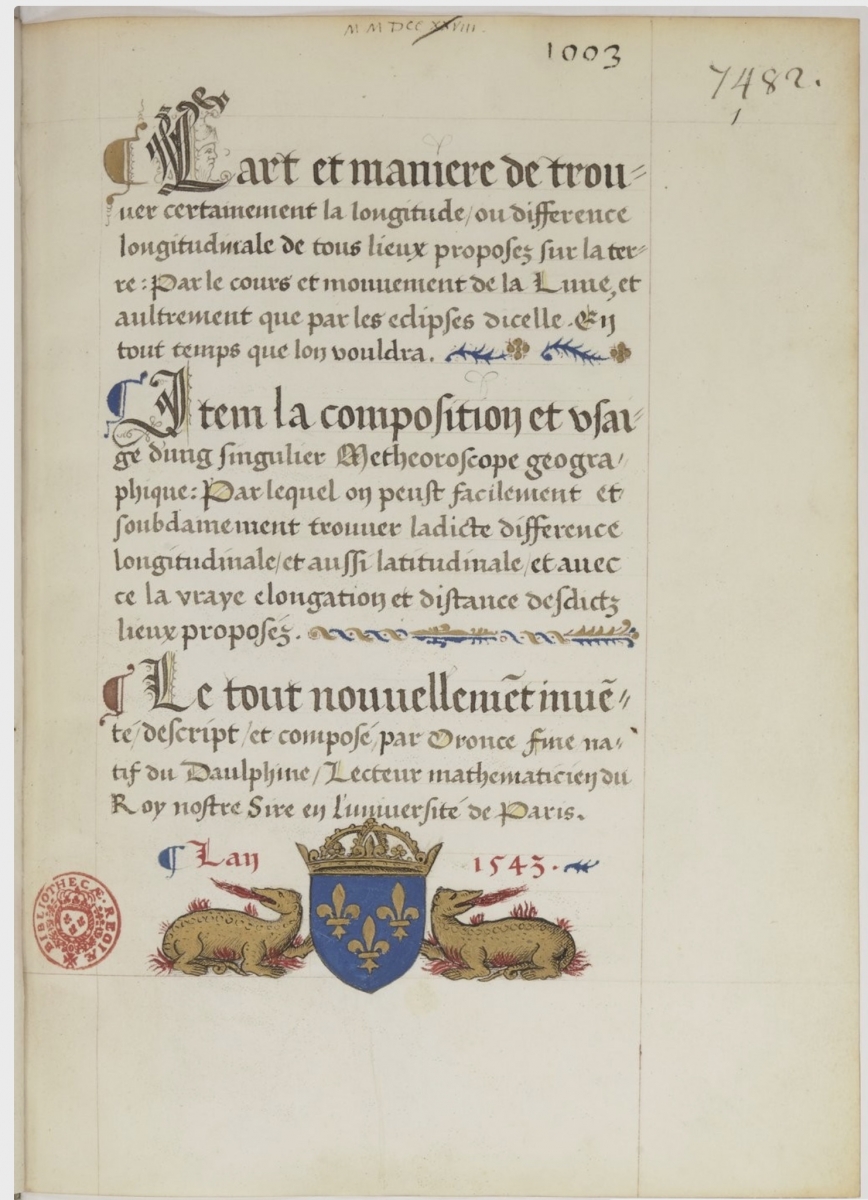 MMDCCXXVIII.
1003
7482.
1
¶ Lart et maniere de trou=
uer certainement la longitude/ou difference
longitudinale de tous lieux proposez sur la ter=
re: Par le cours et mouuement de la Lune, et
aultrement que par les eclipses dicelle. En
tout temps que lon vouldra.
¶ Item la composition et vsai=
ge dung singulier Metheoroscope geogra/
phique: Par lequel on peust facilement et
soubdainement trouuer ladicte difference
longitudinale/et aussi latitudinale/et auec
ce la vraye elongation et distance desdictz
lieux proposez.
¶ Le tout nouuellemēt inuē=
te/descript/et composé/par Oronce fine na=
tif du Daulphine/Lecteur mathematicien du
Roy nostre Sire en l'uniuersité de Paris.
¶ Lan 1543.
BIBLIOTHECÆ REGIÆ